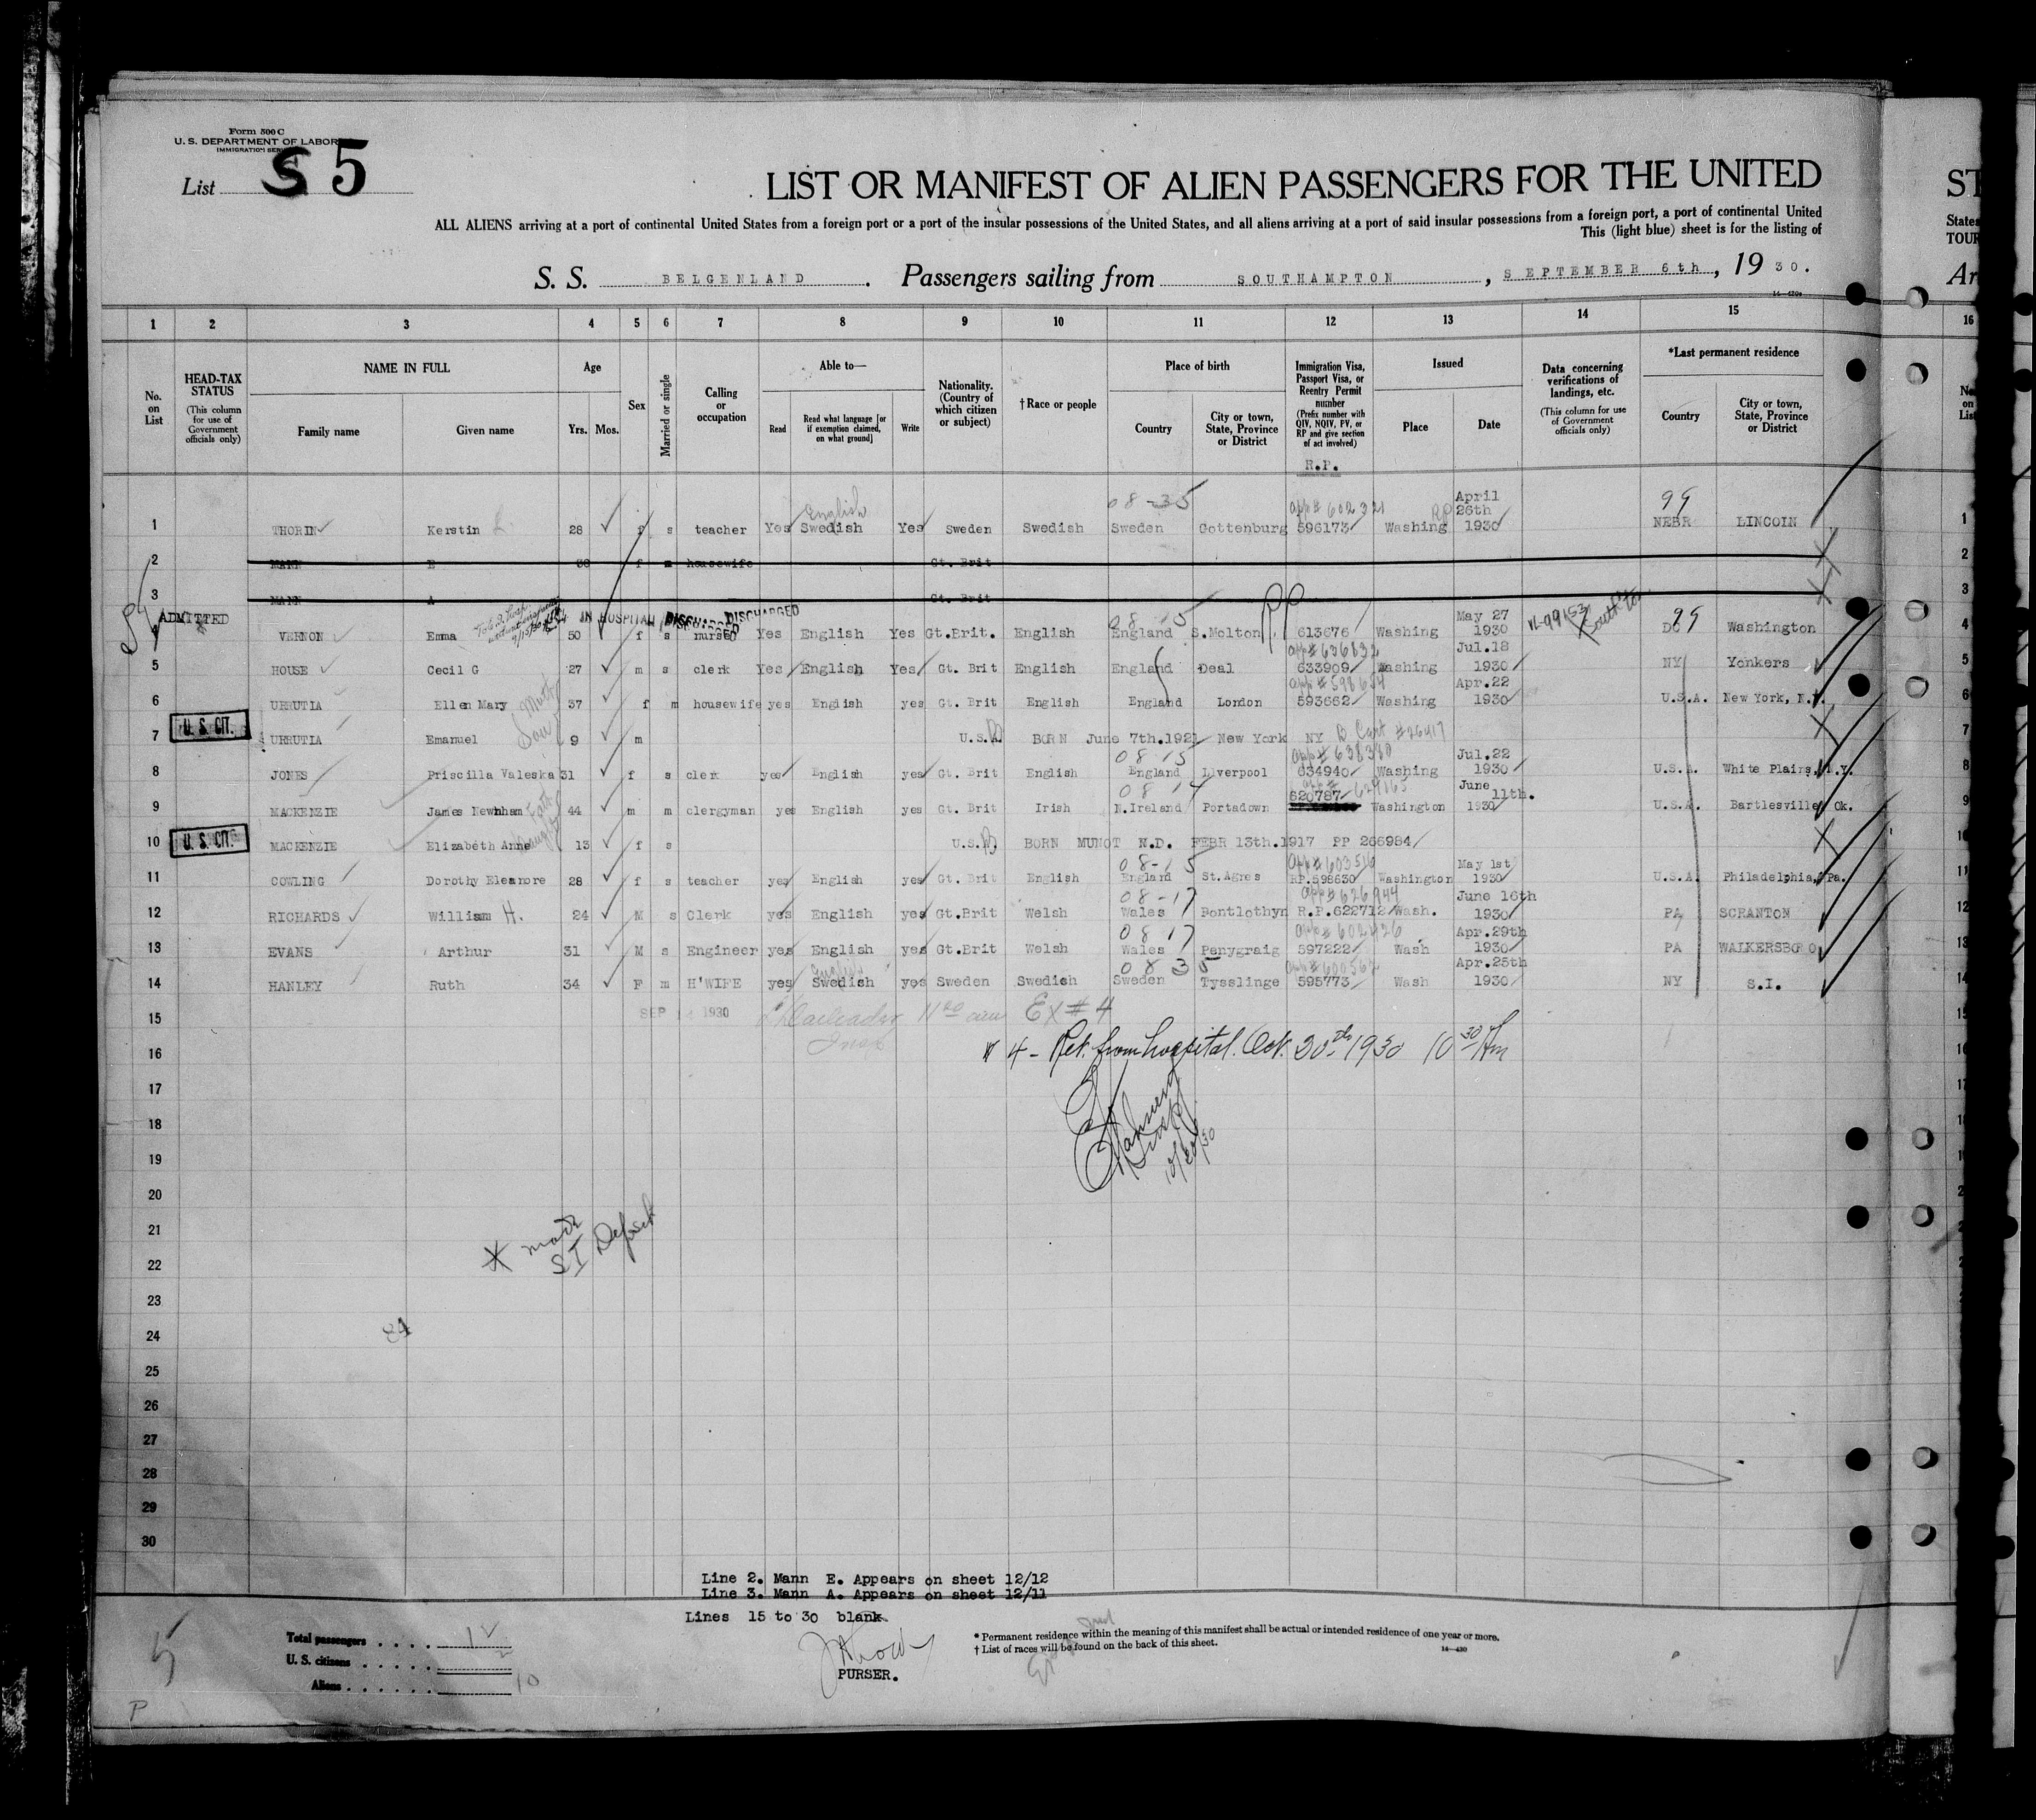 Form 500 C
U. S. DEPARTMENT OF LABOR
IMMIGRATION SERVICE
List S 5
LIST OR MANIFEST OF ALIEN PASSENGERS FOR THE UNITED
ALL ALIENS arriving at a port of continental United States from a foreign port or a port of the insular possessions of the United States, and all aliens arriving at a port of said insular possessions from a foreign port, a port of continental United
This (light blue) sheet is for the listing of
S. S. BELGENLAND. Passengers sailing from SOUTHAMPTON, SEPTEMBER 6th, 1930.
ST
States
TOUR
Ar
1 2 3 4 5 6 7 8 9 10 11 12 13 14 15 16
No. on List
HEAD-TAX STATUS (This column for use of Government officials only)
NAME IN FULL
Family name
Given name
Age
Yrs. Mos.
Sex
Married or single
Calling or occupation
Able to—
Read
Read what language [or if exemption claimed, on what ground]
Write
Nationality. (Country of which citizen or subject)
†Race or people
Place of birth
Country
City or town, State, Province or District
Immigration Visa, Passport Visa, or Reentry Permit number (Prefix number with QIV, NQIV, PV, or RP and give section of act involved)
R.P.
Issued
Place
Date
Data concerning verifications of landings, etc.
(This column for use of Government officials only)
*Last permanent residence
Country
City or town, State, Province or District
08-35 99
English app# 602321 April 26th
1 THORIN Kerstin 28 f s teacher Yes Swedish Yes Sweden Swedish Sweden Gottenburg 596173 Washing 1930 NEBR LINCOLN 1
2 MANN E 36 f m housewife Gt. Brit 2
3 MANN A Gt. Brit 3
ADMITTED IN HOSPITAL DISCHARGED DISCHARGED May 27
4 VERNON Emma 50 f s nurse Yes English Yes Gt.Brit. English England S.Molton 613676 Washing 1930 DC 99 Washington 4
app# 636832 Jul.18
5 HOUSE Cecil G 27 m s clerk Yes English Yes Gt. Brit English England Deal 633909 Washing 1930 NY Yonkers 5
app# 598654 Apr.22
6 URRUTIA Ellen Mary 37 f m housewife yes English yes Gt. Brit English England London 593662 Washing 1930 U.S.A. New York, N.Y. 6
U. S. CIT.
7 URRUTIA Emanuel 9 m U.S.A. BORN June 7th.1921 New York NY B Cert #26417 7
08 15 app# 638380 Jul.22
8 JONES Priscilla Valeska 31 f s clerk yes English yes Gt. Brit English England Liverpool 634940 Washing 1930 U.S.A. White Plains, N.Y. 8
08 14 June 11th.
9 MACKENZIE James Newnham 44 m m clergyman yes English yes Gt. Brit Irish N.Ireland Portadown 620787 Washington 1930 U.S.A. Bartlesville Ok. 9
U. S. CIT.
10 MACKENZIE Elizabeth Anne 13 f s U.S. BORN MUNOT N.D. FEBR 13th.1917 PP 266984 10
08-15 app# 603516 May 1st
11 COWLING Dorothy Eleanore 28 f s teacher yes English yes Gt. Brit English England St.Agnes RP.598630 Washington 1930 U.S.A Philadelphia, Pa. 11
08-17 app# 626944 June 16th
12 RICHARDS William H. 24 M s Clerk yes English yes Gt.Brit Welsh Wales Pontlothyn R.P.622712 Wash. 1930 PA SCRANTON 12
08 17 app# 602426 Apr.29th
13 EVANS Arthur 31 M s Engineer yes English yes Gt.Brit Welsh Wales Penygraig 597222 Wash 1930 PA WALKERSBORO 13
English 08 35 app# 600562 Apr.25th
14 HANLEY Ruth 34 F m H'WIFE yes Swedish yes Sweden Swedish Sweden Tysslinge 595773 Wash 1930 NY S.I. 14
15 SEP 1930 Ex # 4
16 # 4 - Ret. from hospital. Oct. 20th 1930 10 30 Am
17
18
10/20/30
19
20
21
22
S I
23
24
84
25
26
27
28
29
30
Line 2. Mann E. Appears on sheet 12/12
Line 3. Mann A. Appears on sheet 12/11
Lines 15 to 30 blank.
Total passengers . . . . 12
U. S. citizens . . . . . 2
Aliens . . . . . . 10
5
P
PURSER.
* Permanent residence within the meaning of this manifest shall be actual or intended residence of one year or more.
† List of races will be found on the back of this sheet.
14—430